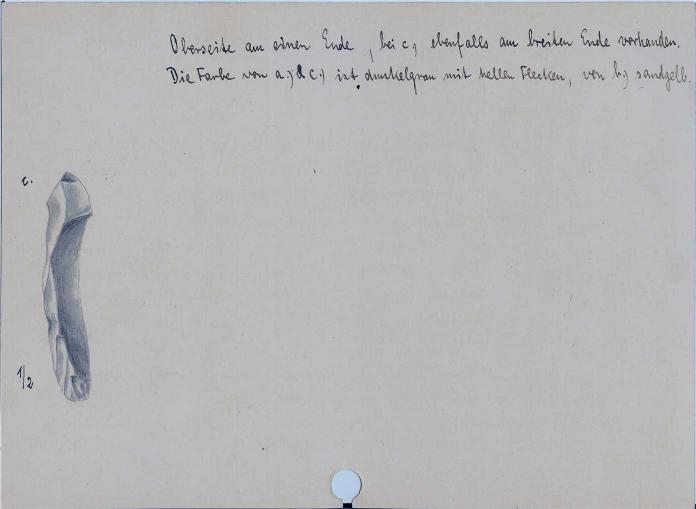 Oberseite am einen Ende, bei c.) ebenfalls am breiten Ende vorhanden.
Die Farbe von a.) & c.) ist dunkelgrau mit hellen Flecken, von b.) sandgelb.
c.
1/2